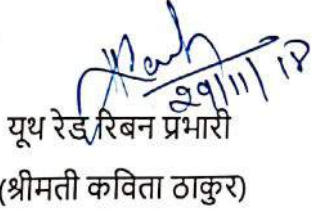 29/11/18
यूथ रेड रिबन प्रभारी
(श्रीमती कविता ठाकुर)